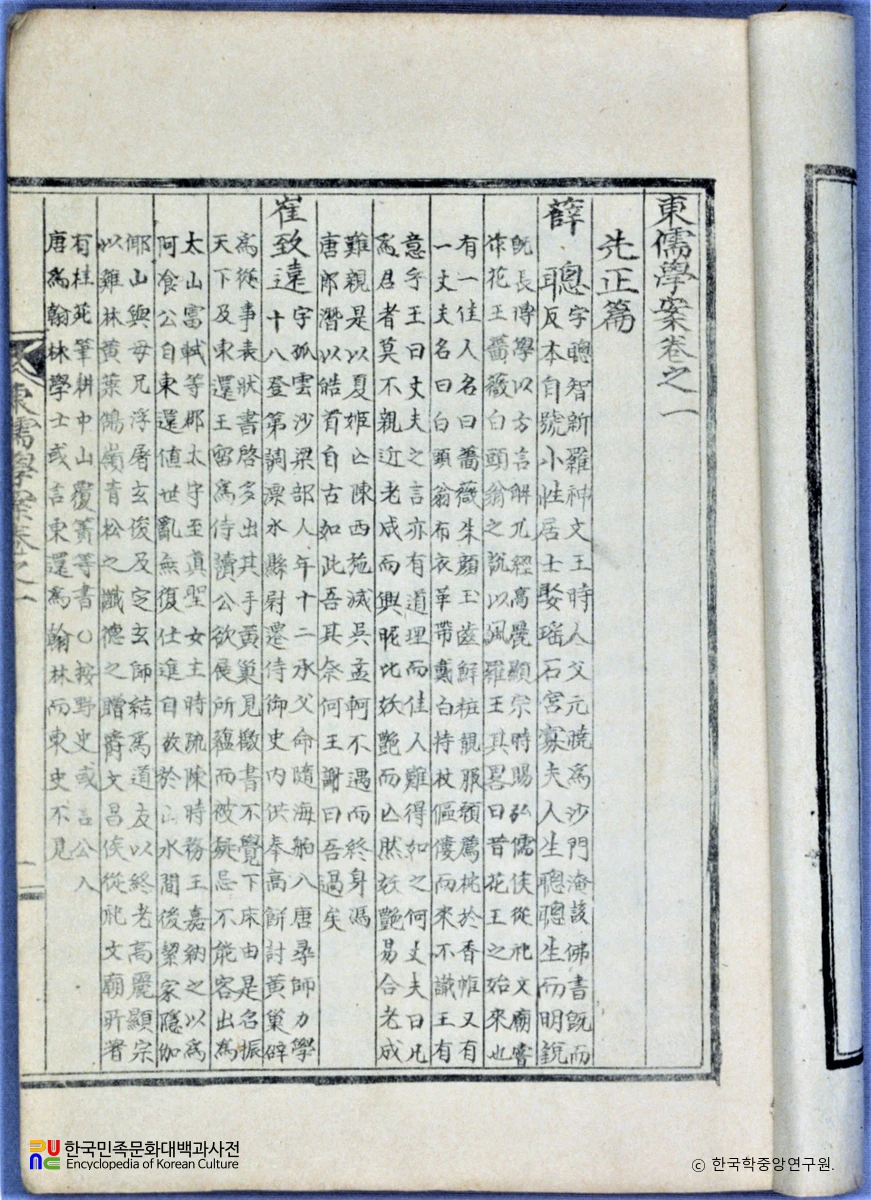 東儒學案卷之一
先正篇
薛聰 字聰智新羅神文王時人父元曉爲沙門淹該佛書旣而
反本自號小性居士娶瑤石宮寡夫人生聰聰生而明銳
旣長博學以方言解九經高麗顯宗時賜弘儒侯從祀文廟嘗
作花王薔薇白頭翁之說以諷羅王其畧曰昔花王之始來也
有一佳人名曰薔薇朱顔玉齒鮮粧靚服願薦枕於香帷又有
一丈夫名曰白頭翁布衣革帶戴白持杖傴僂而來不識王有
意乎王曰丈夫之言亦有道理而佳人難得如之何丈夫曰凡
爲君者莫不親近老成而興昵比妖艶而亡然妖艶易合老成
難親是以夏姬亡陳西施滅吳孟軻不遇而終身馮
唐郎潛以皓首自古如此吾其奈何王謝曰吾過矣
崔致遠 字孤雲沙梁部人年十二承父命隨海舶入唐尋師力學
十八登第調溧水縣尉遷侍御史內供奉高餠討黃巢辟
爲從事表狀書啓多出其手黃巢見檄書不覺下床由是名振
天下及東還王留爲侍讀公欲展所蘊而被疑忌不能容出爲
太山富城等郡太守至眞聖女主時疏陳時務王嘉納之以爲
阿飡公自東還値世亂無復仕進自放於山水間後挈家隱伽
倻山與母兄浮屠玄俊及定玄師結爲道友以終老高麗顯宗
以雞林黃葉鵠嶺靑松之讖德之贈諡文昌侯從祀文廟所著
有桂苑筆耕中山覆簣等書○按野史或言公入
唐爲翰林學士或言東還爲翰林而東史不見
東儒學案卷之一
一
한국민족문화대백과사전
Encyclopedia of Korean Culture
ⓒ 한국학중앙연구원.